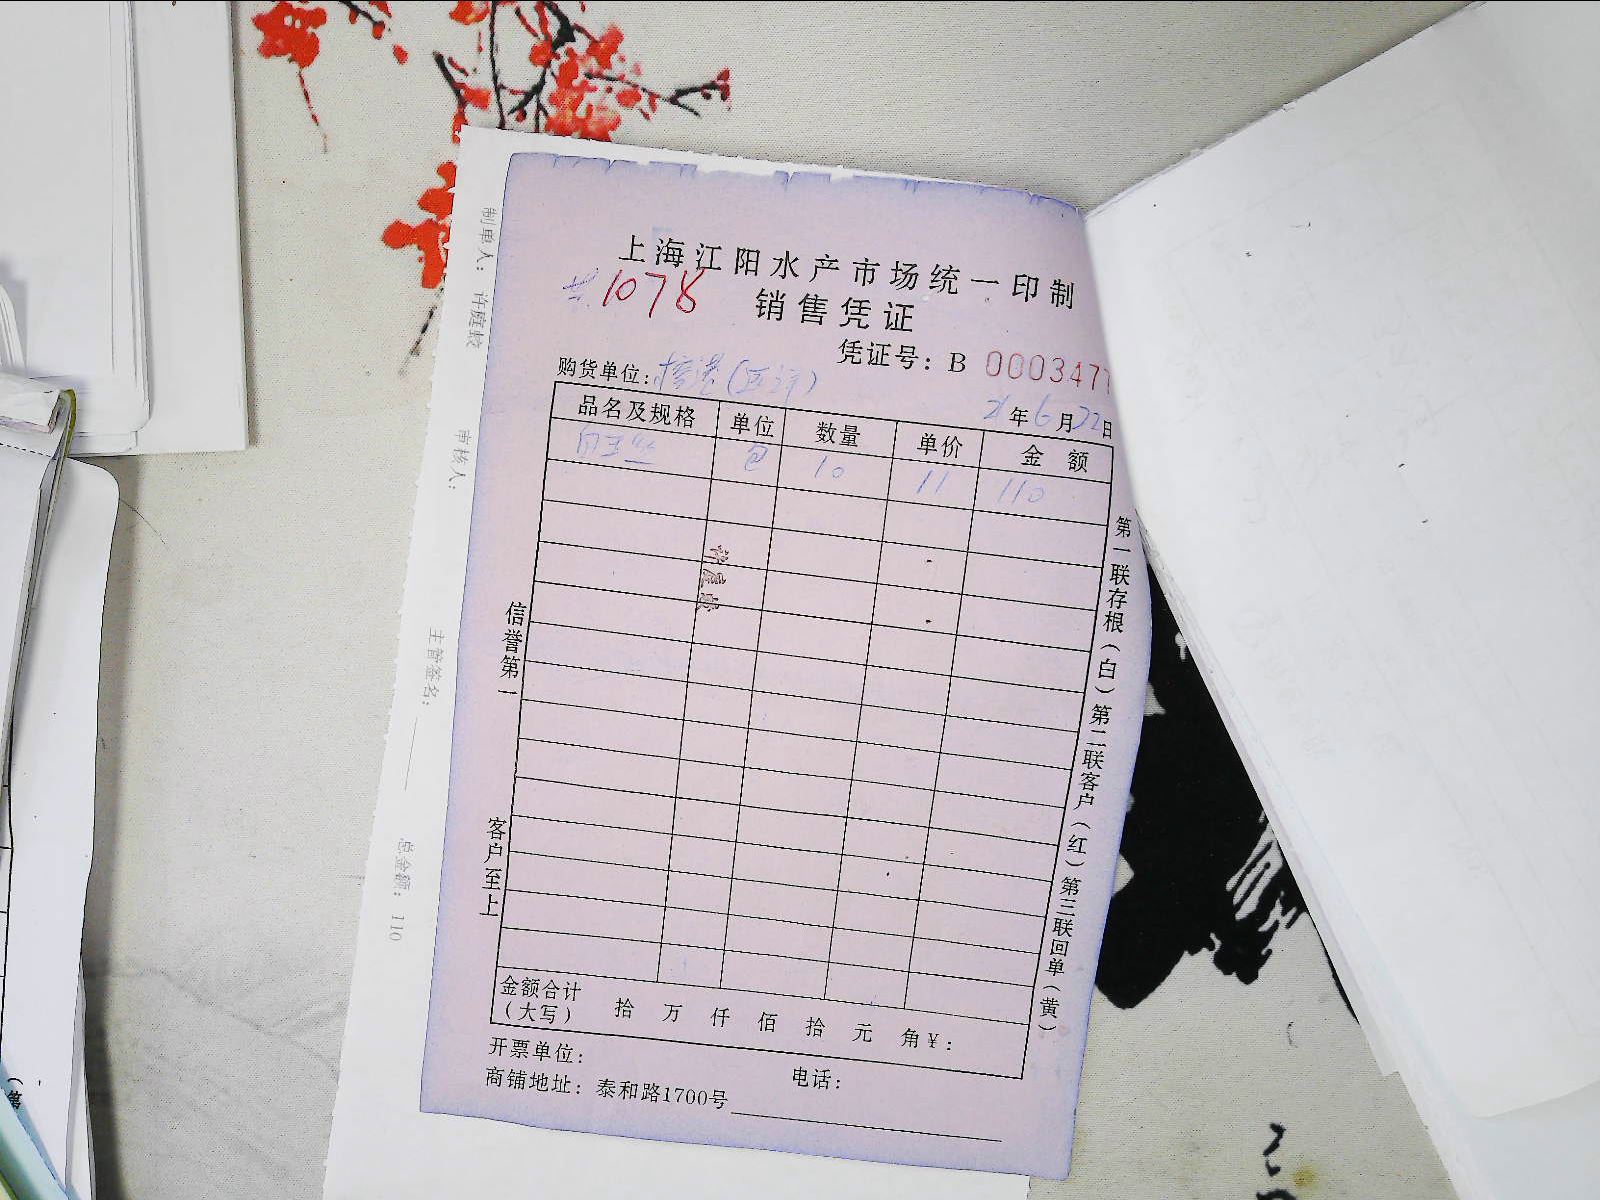 上海江阳水产市场统一印制
1078
销售凭证
凭证号：B 000347
购货单位：
21年6月22日
品名及规格 单位 数量 单价 金额
白玉丝 包 10 11 110
第一联存根（白）第二联客户（红）第三联回单（黄）
信誉第一
客户至上
金额合计
（大写） 拾 万 仟 佰 拾 元 角 ¥：
开票单位：
电话：
商铺地址：泰和路1700号
制单人：许庭蛟
审核人：
主管签名：
总金额：110